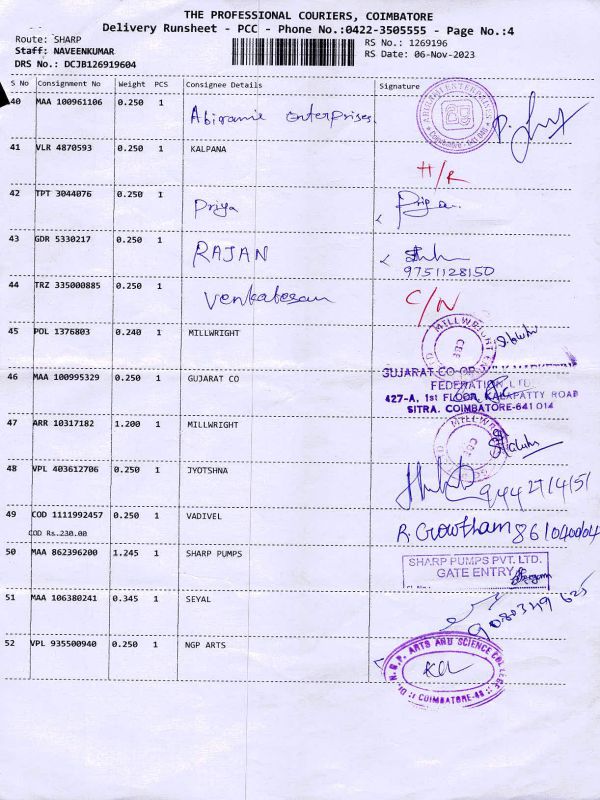 THE PROFESSIONAL COURIERS, COIMBATORE
Delivery Runsheet - PCC - Phone No.:0422-3505555 - Page No.:4
Route: SHARP
RS No.: 1269196
Staff: NAVEENKUMAR
RS Date: 06-Nov-2023
DRS No.: DCJB126919604
S No Consignment No Weight PCS Consignee Details Signature
40 MAA 100961106 0.250 1 Abiramie Enterprises.
41 VLR 4870593 0.250 1 KALPANA H/R
42 TPT 3044076 0.250 1 Priya Priya.
43 GDR 5330217 0.250 1 RAJAN
9751128150
44 TRZ 335000885 0.250 1 Venkatesan C/N
45 POL 1376803 0.240 1 MILLWRIGHT MILLWRIGHT CBE
46 MAA 100995329 0.250 1 GUJARAT CO GUJARAT CO-OP
FEDERATION LTD.
427-A, 1st FLOOR, KALAPATTY ROAD
SITRA. COIMBATORE-641 014
47 ARR 10317182 1.200 1 MILLWRIGHT CBE
48 VPL 403612706 0.250 1 JYOTSHNA 9442714151
49 COD 1111992457 0.250 1 VADIVEL R. Growtham
COD Rs.230.00
50 MAA 862396200 1.245 1 SHARP PUMPS SHARP PUMPS PVT. LTD.
GATE ENTRY
51 MAA 106380241 0.345 1 SEYAL
52 VPL 935500940 0.250 1 NGP ARTS Dr. N.G.P. ARTS AND SCIENCE COLLEGE COIMBATORE-48